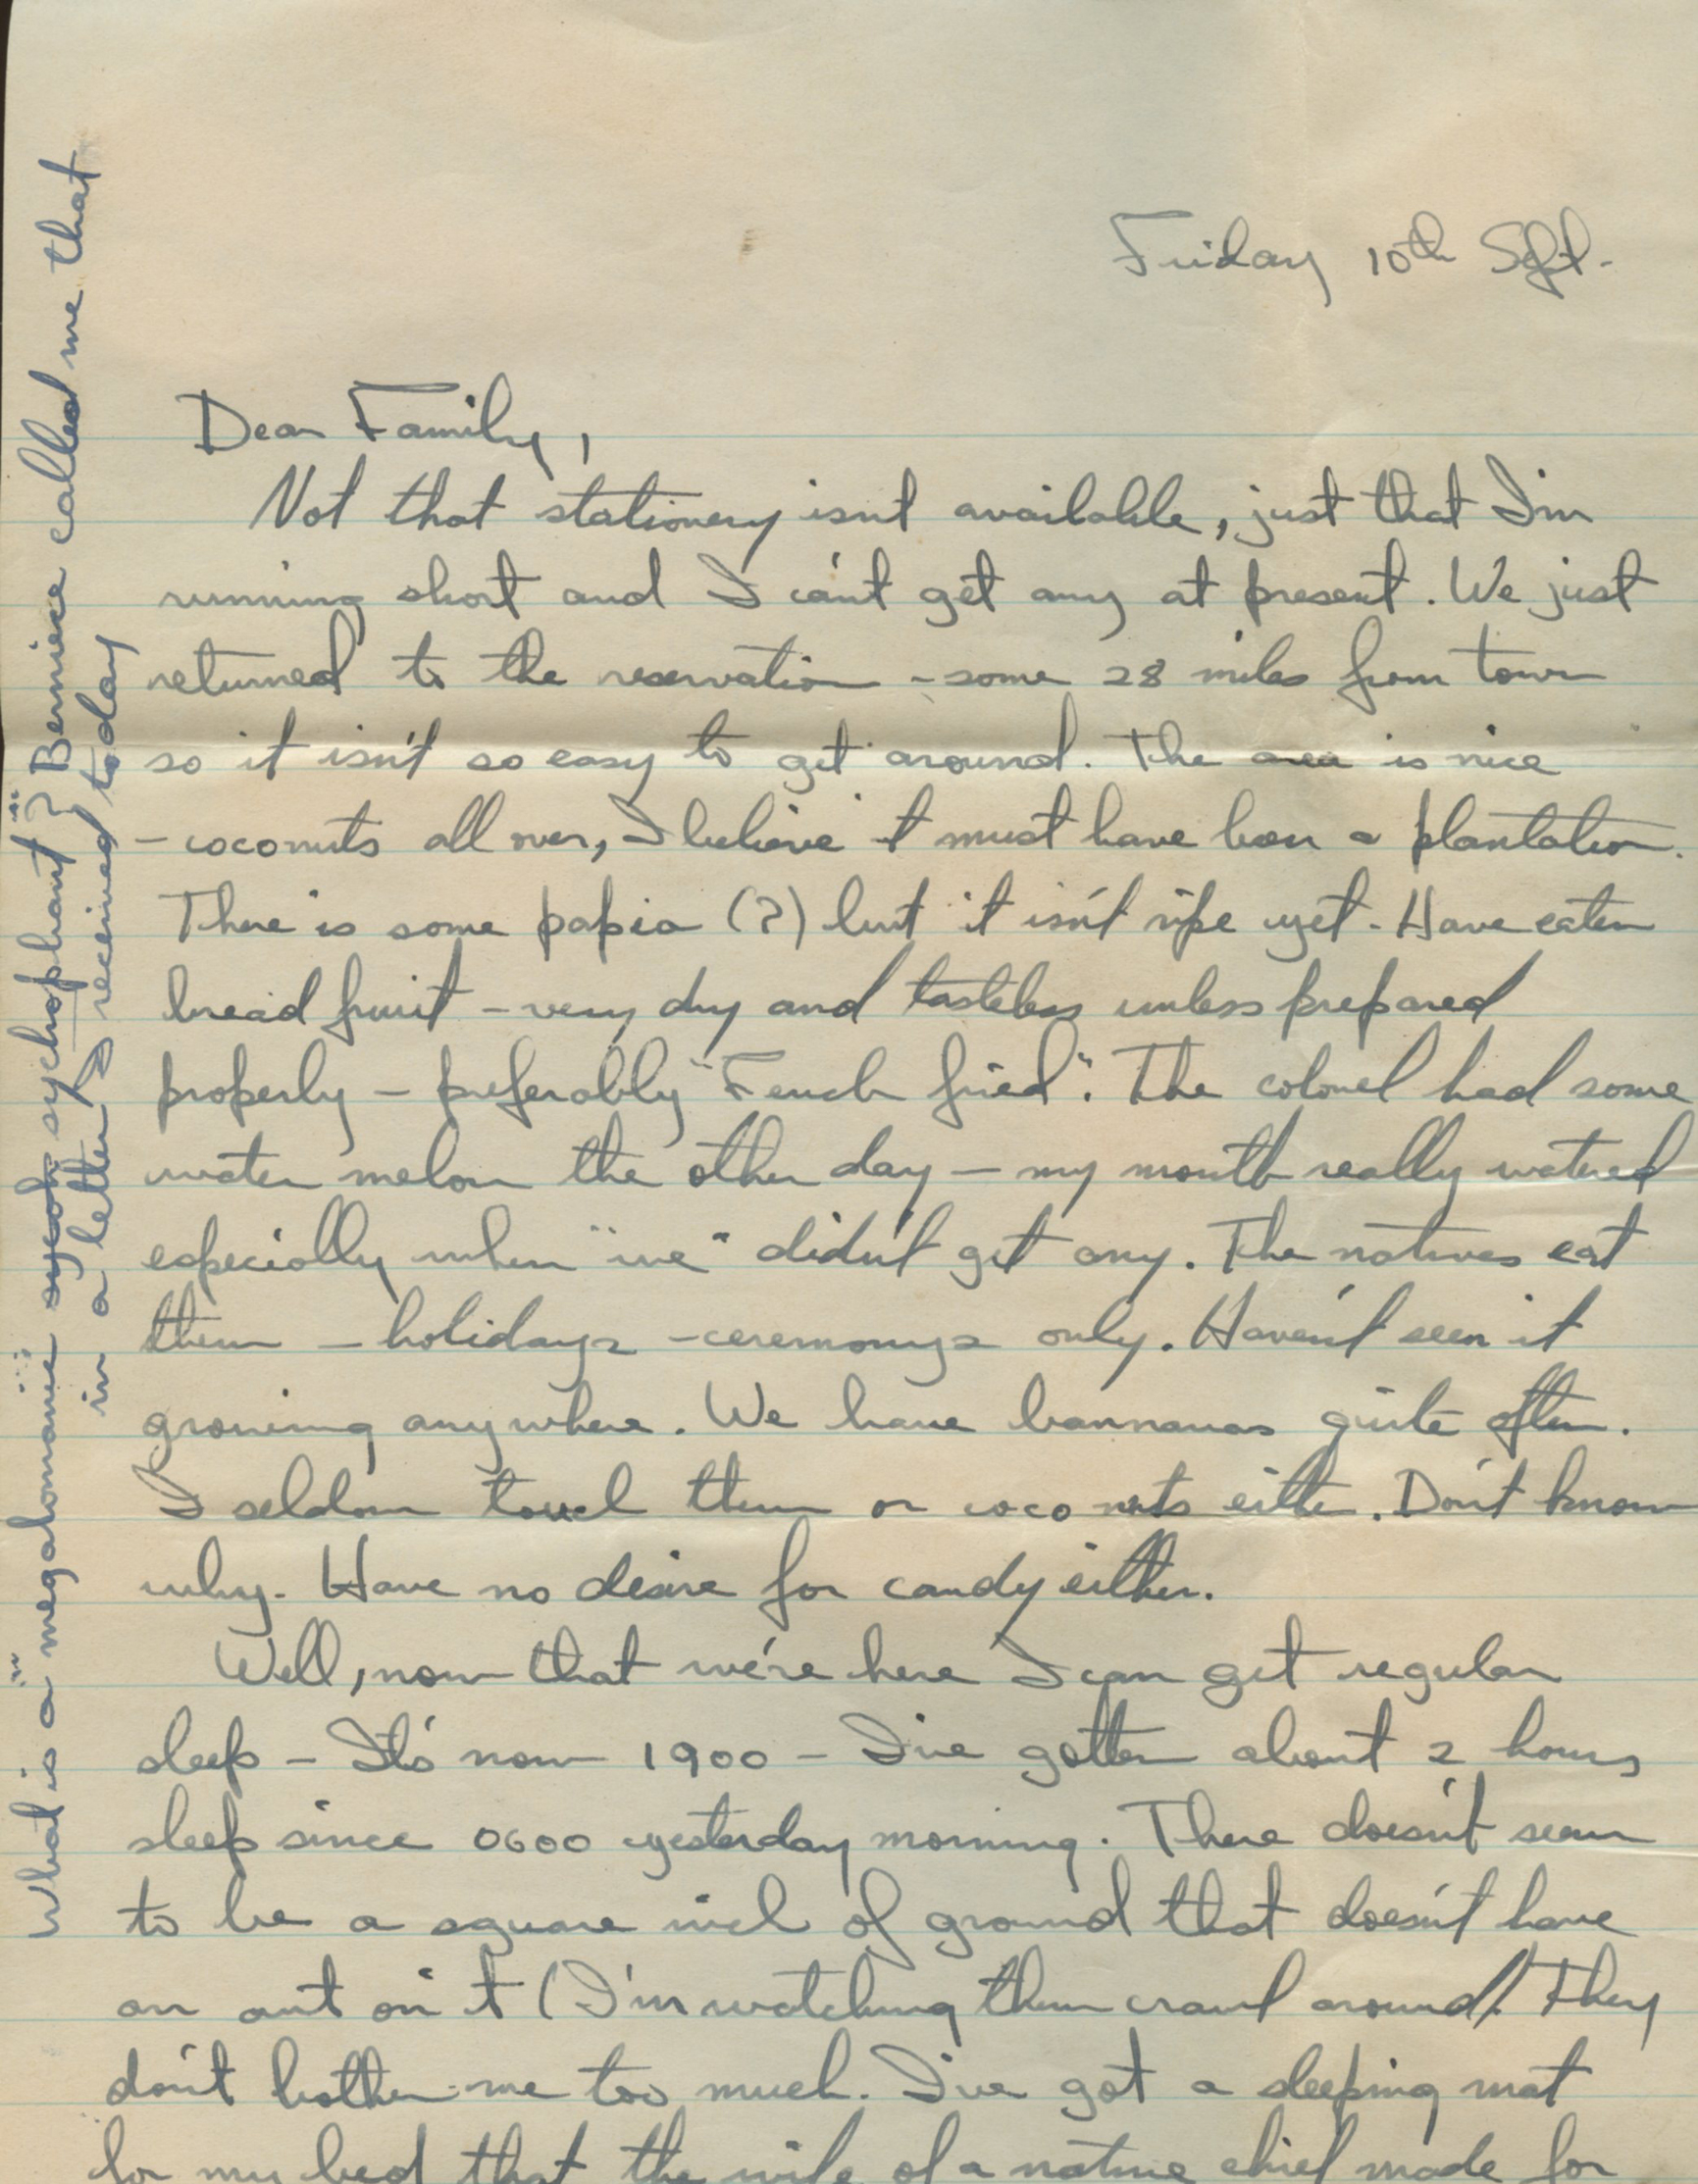 Friday 10th Sept.
Dear Family,
Not that stationery isnt available, just that I'm
running short and I can't get any at present. We just
returned to the reservation - some 28 miles from town
so it isn't so easy to get around. The area is nice
- coconuts all over, I believe it must have been a plantation.
There is some papia (?) but it isn't ripe yet. Have eaten
bread fruit - very dry and tasteless unless prepared
properly - preferably "French fried". The colonel had some
water melon the other day - my mouth really watered
especially when "we" didn't get any. The natives eat
them - holidays - ceremonys only. Haven't seen it
growing anywhere. We have bannanas quite often.
I seldom touch them or coco nuts either. Don't know
why. Have no desire for candy either.
Well, now that we're here I can get regular
sleep - It's now 1900 - I've gotten about 2 hours
sleep since 0600 yesterday morning. There doesn't seem
to be a square inch of ground that doesn't have
an ant on it (I'm watching them crawl around). They
don't bother me too much. I've got a sleeping mat
for my bed that the wife of a native chief made for
What is a "megalomanic sychophant"? Berniece called me that
in a letter I received today